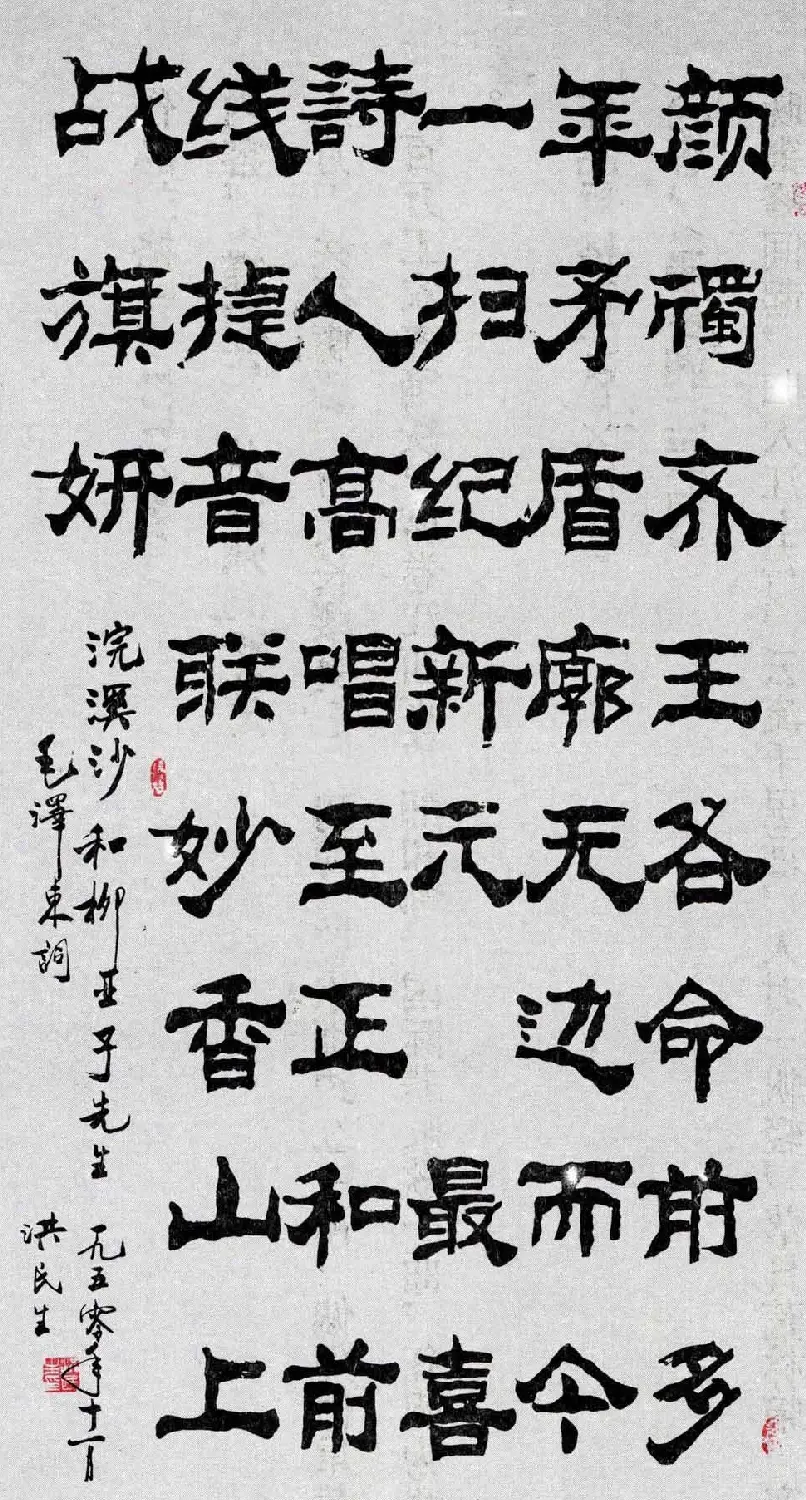 颜斶齐王各命前多
年矛盾廓无边而今
一扫纪新元最喜
詩人高唱至和正前
线捷音联妙香山上
战旗妍
浣溪沙 和柳亚子先生 一九五零年十一月
毛澤東詞 洪民生